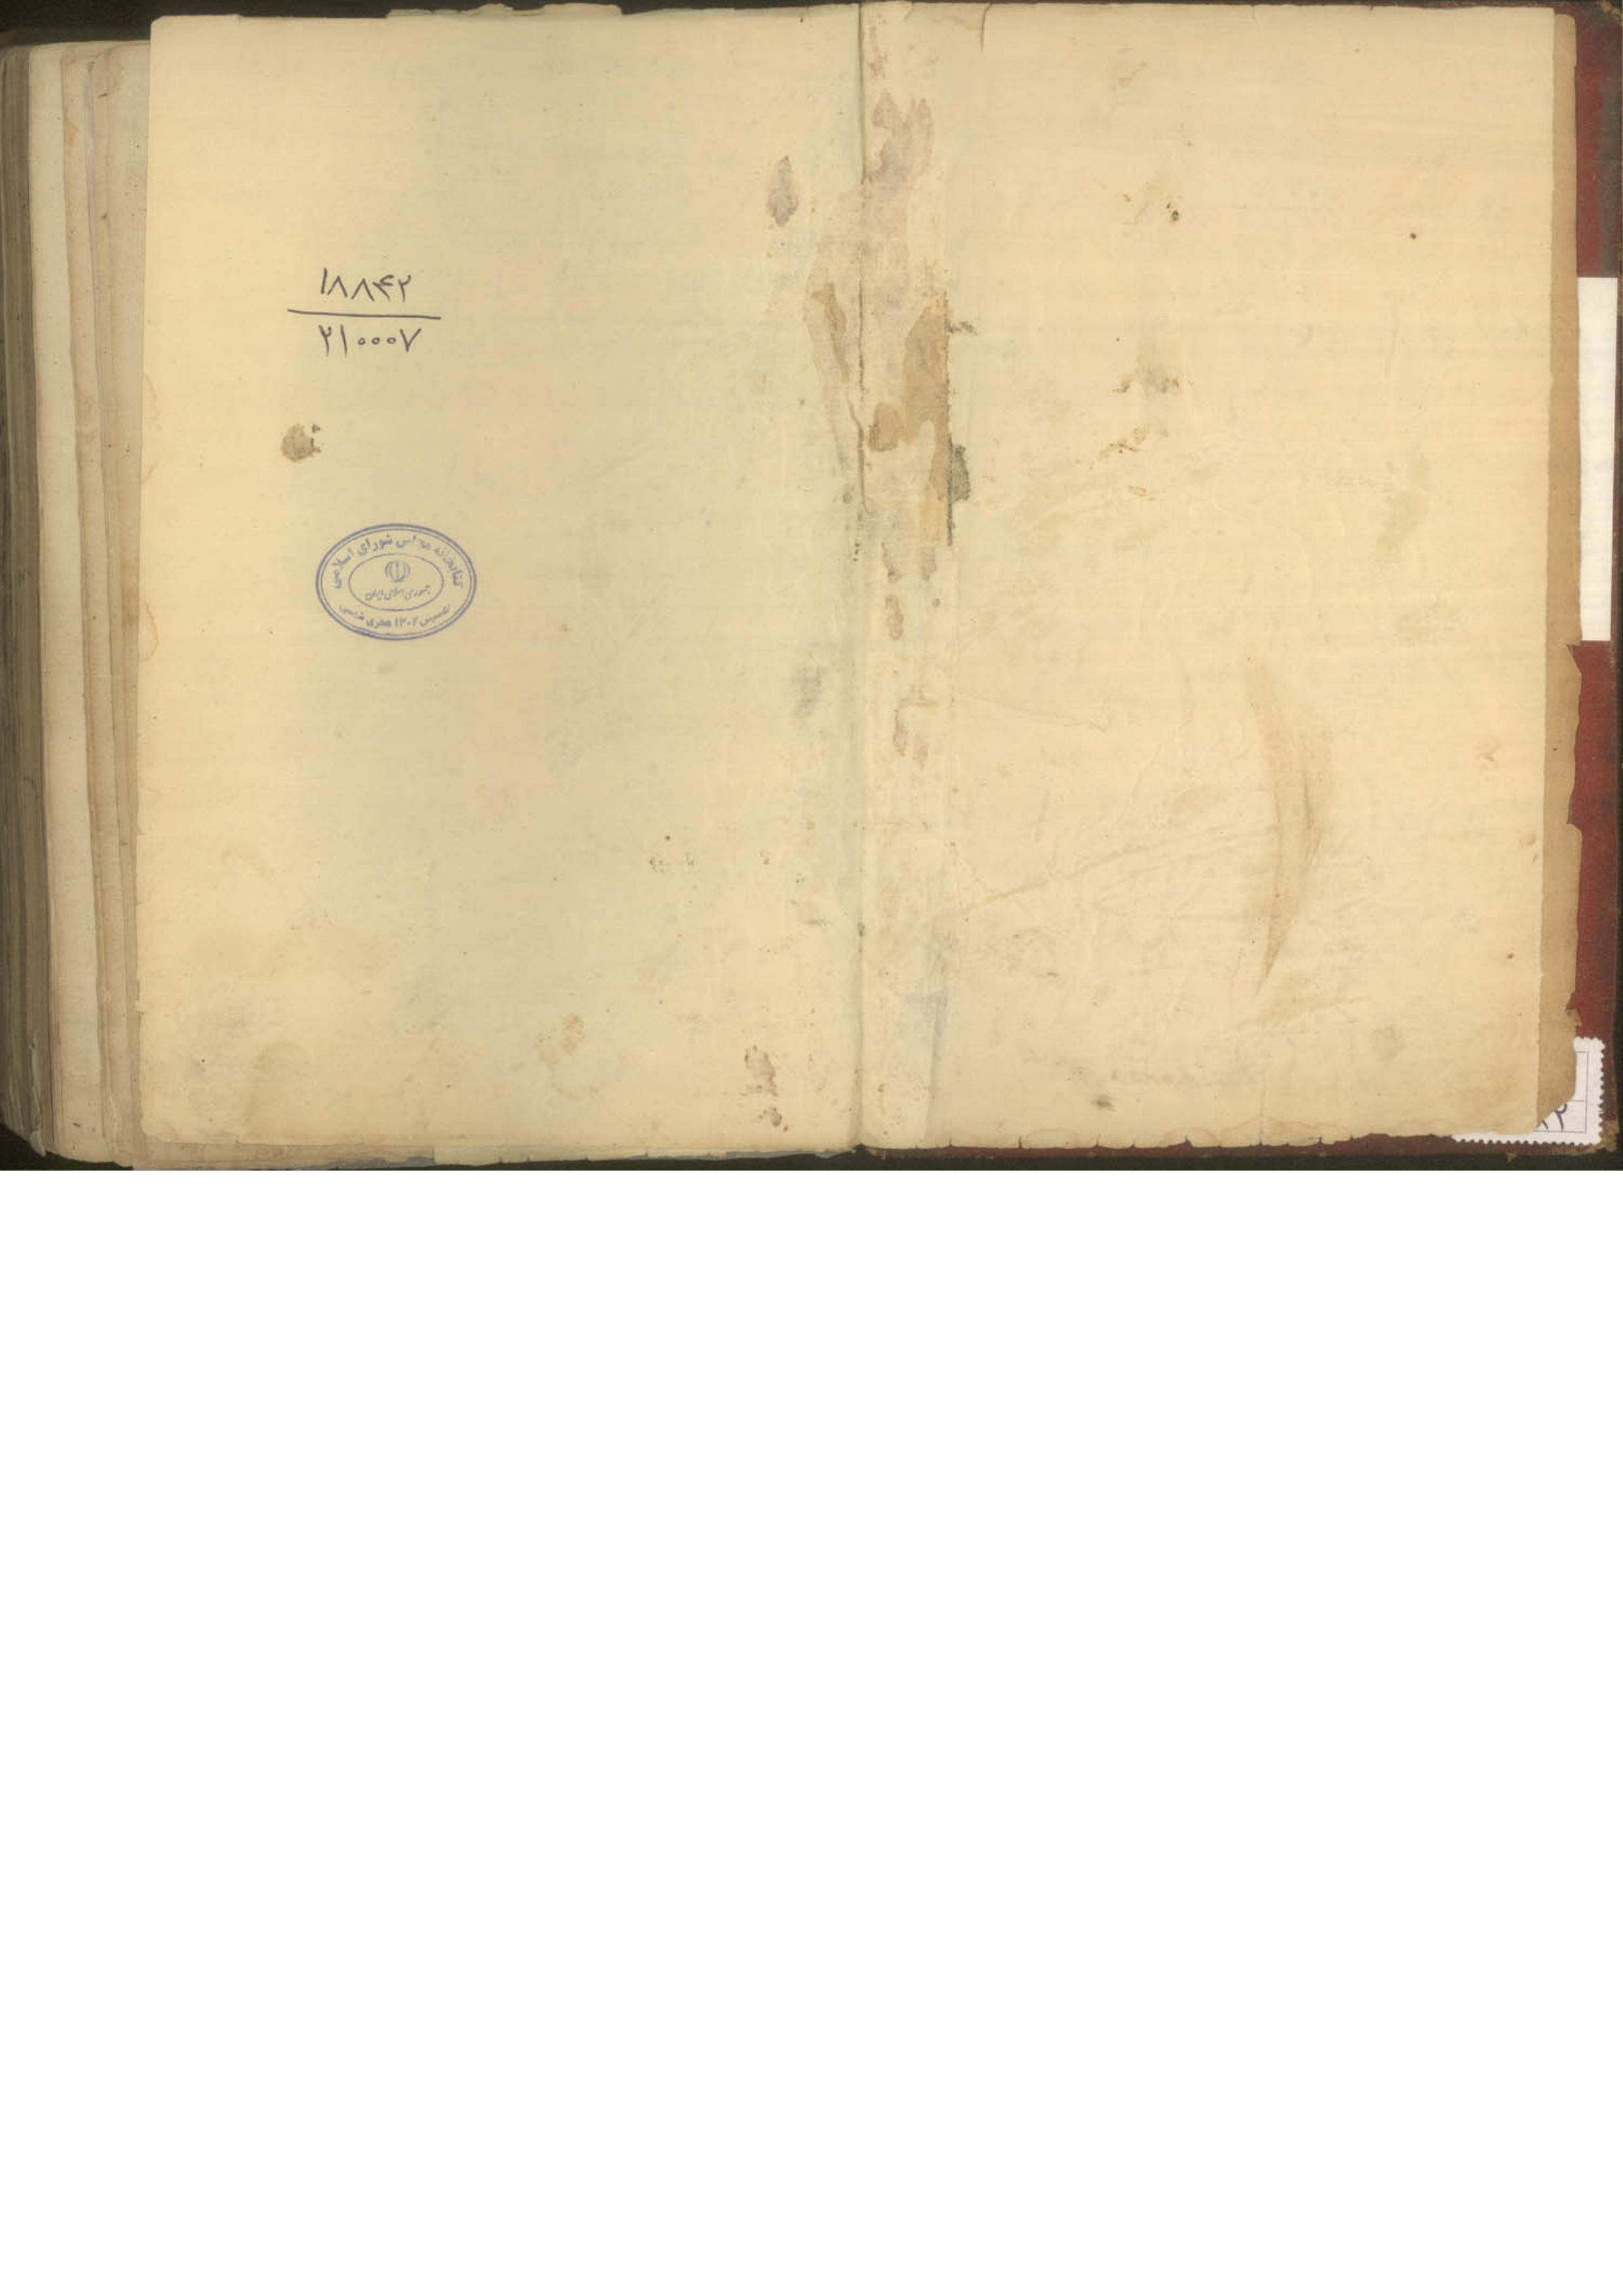 ۱۸۸۴۲
۲۱۰۰۰۷
کتابخانه مجلس شورای اسلامی
جمهوری اسلامی ایران
تاسیس ۱۳۰۲ هجری شمسی